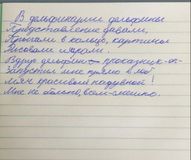 В дельфинарии дельфины
Представление давали,
Прыгали в кольцо, картины
Рисовали мелками.
Вдруг дельфин – проказник-ас
Запустил мне прямо в лоб
Мяч красивый надувной!
Мне не больно, всем смешно.